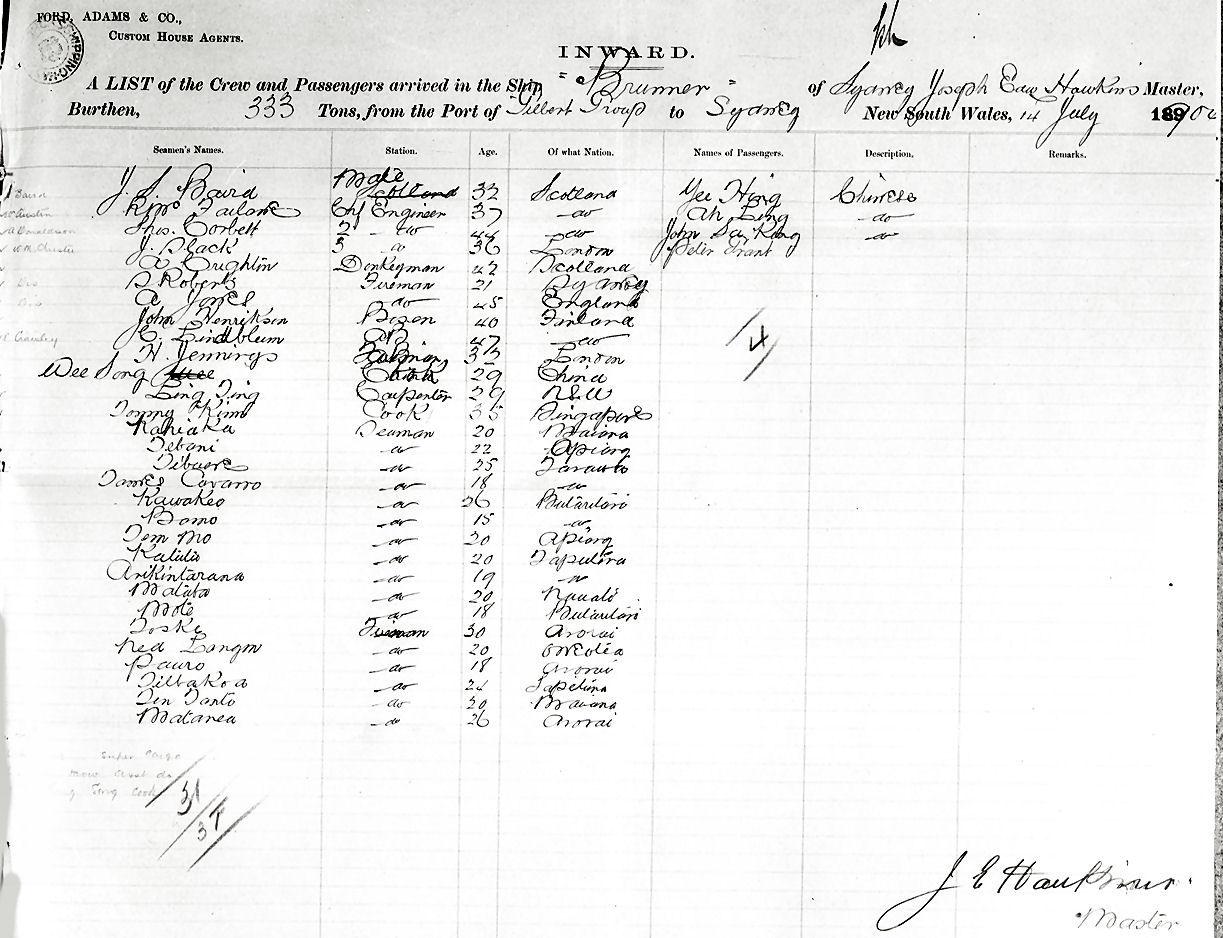 FORD, ADAMS & CO.,
CUSTOM HOUSE AGENTS.
INWARD.
A LIST of the Crew and Passengers arrived in the Ship "Brunner" of Sydney Joseph Edw Hawkins Master,
Burthen, 333 Tons, from the Port of Gilbert Group to Sydney New South Wales, 14 July 1904
Seamen's Names. Station. Age. Of what Nation. Names of Passengers. Description. Remarks.
J. S. Baird Mate 32 Scotland Yee Hing Chinese
Chf Engineer 37 do Ah Ling do
Thos. Corbett 2 do 44 do John Sar Kong do
J. Black 3 do 36 London Peter Grant
A Crightin Donkeyman 42 Scotland
D Roberts Fireman 21 Sydney
A Jones do 45 England
John Henriksen Bosen 40 Finland
C. Lindblum AB 47 do
H. Jennings 32 London
Wee Song 29 China
Ling Ting Carpenter 29 NSW
Tommy Kim Cook 35 Singapore
Kahiaka Seaman 20 Maiana
Tebani do 22 Apiang
Tibaore do 25 Tarawa
James Cavarro do 18 do
Kawakeo do 26 Butaritari
Bomo do 15 do
Tem Mo do 20 Apiang
Katutu do 20 Taputera
Arikintarana do 19 do
Matata do 20 Kauato
Mote do 18 Butaritari
Toske Fireman 30 Arorai
Ned Langin do 20 Oneotea
Pauro do 18 Arorai
Tilbakoa do 24 Tapetuea
Ten Tanto do 20 Maiana
Matanea do 26 Arorai
4
31
J E Hawkins
Master